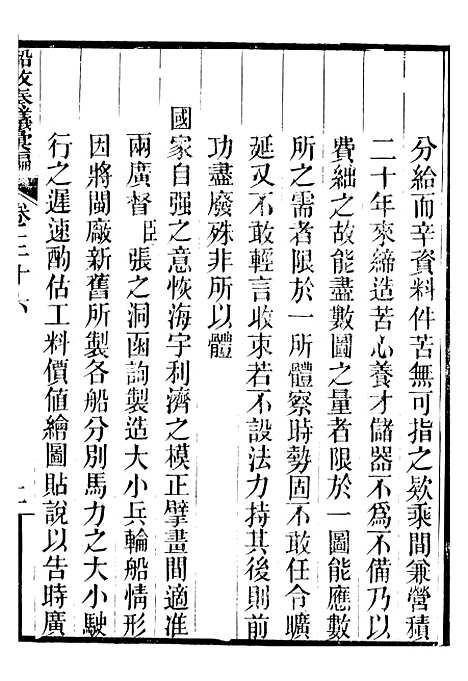 分給而辛資料件苦無可指之欵乘間兼營積
二十年來締造苦心養才儲器不爲不備乃以
費絀之故能盡數圖之量者限於一圖能應數
所之需者限於一所體察時勢固不敢任令曠
延又不敢輕言收束若不設法力持其後則前
功盡廢殊非所以體
國家自强之意恢海宇利濟之模正擘畫間適准
兩廣督臣張之洞函詢製造大小兵輪船情形
因將閩廠新舊所製各船分別馬力之大小駛
行之遲速酌估工料價值繪圖貼說以告時廣
船政奏議彙編 卷三十六